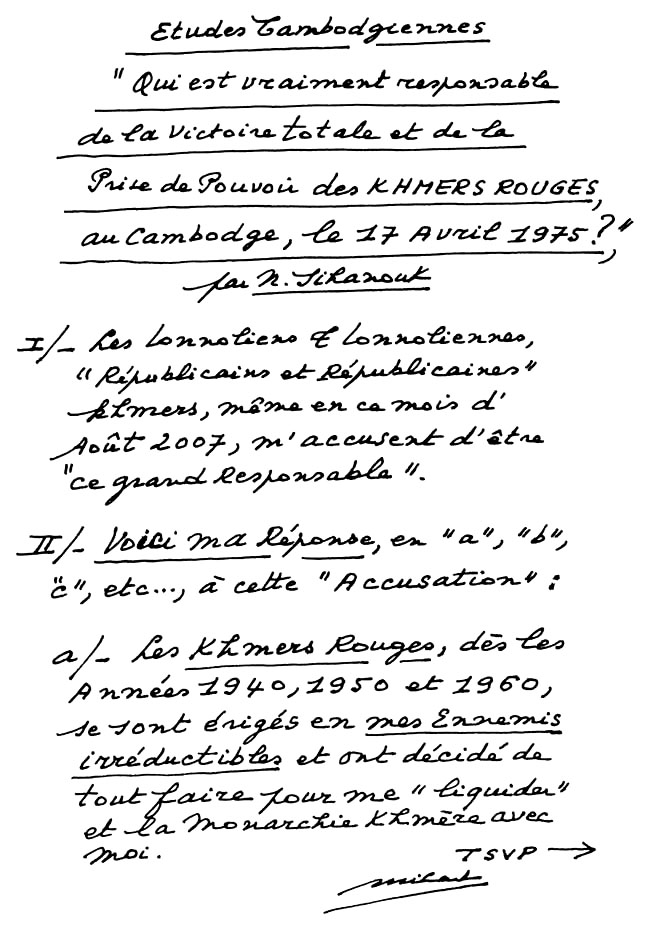 Etudes Cambodgiennes
"Qui est vraiment responsable
de la Victoire totale et de la
Prise de Pouvoir des KHMERS ROUGES,
au Cambodge, le 17 Avril 1975?,"
par N. Sihanouk
I/- Les Lonnoliens & Lonnoliennes,
"Républicains et Républicaines"
khmers, même en ce mois d'
Août 2007, m'accusent d'être
"ce grand Responsable".
II/- Voici ma Réponse, en "a", "b",
"c", etc..., à cette "Accusation" :
a/- Les Khmers Rouges, dès les
Années 1940, 1950 et 1960,
se sont érigés en mes Ennemis
irréductibles et ont décidé de
tout faire pour me "liquider"
et la Monarchie Khmère avec
moi.
TSVP →